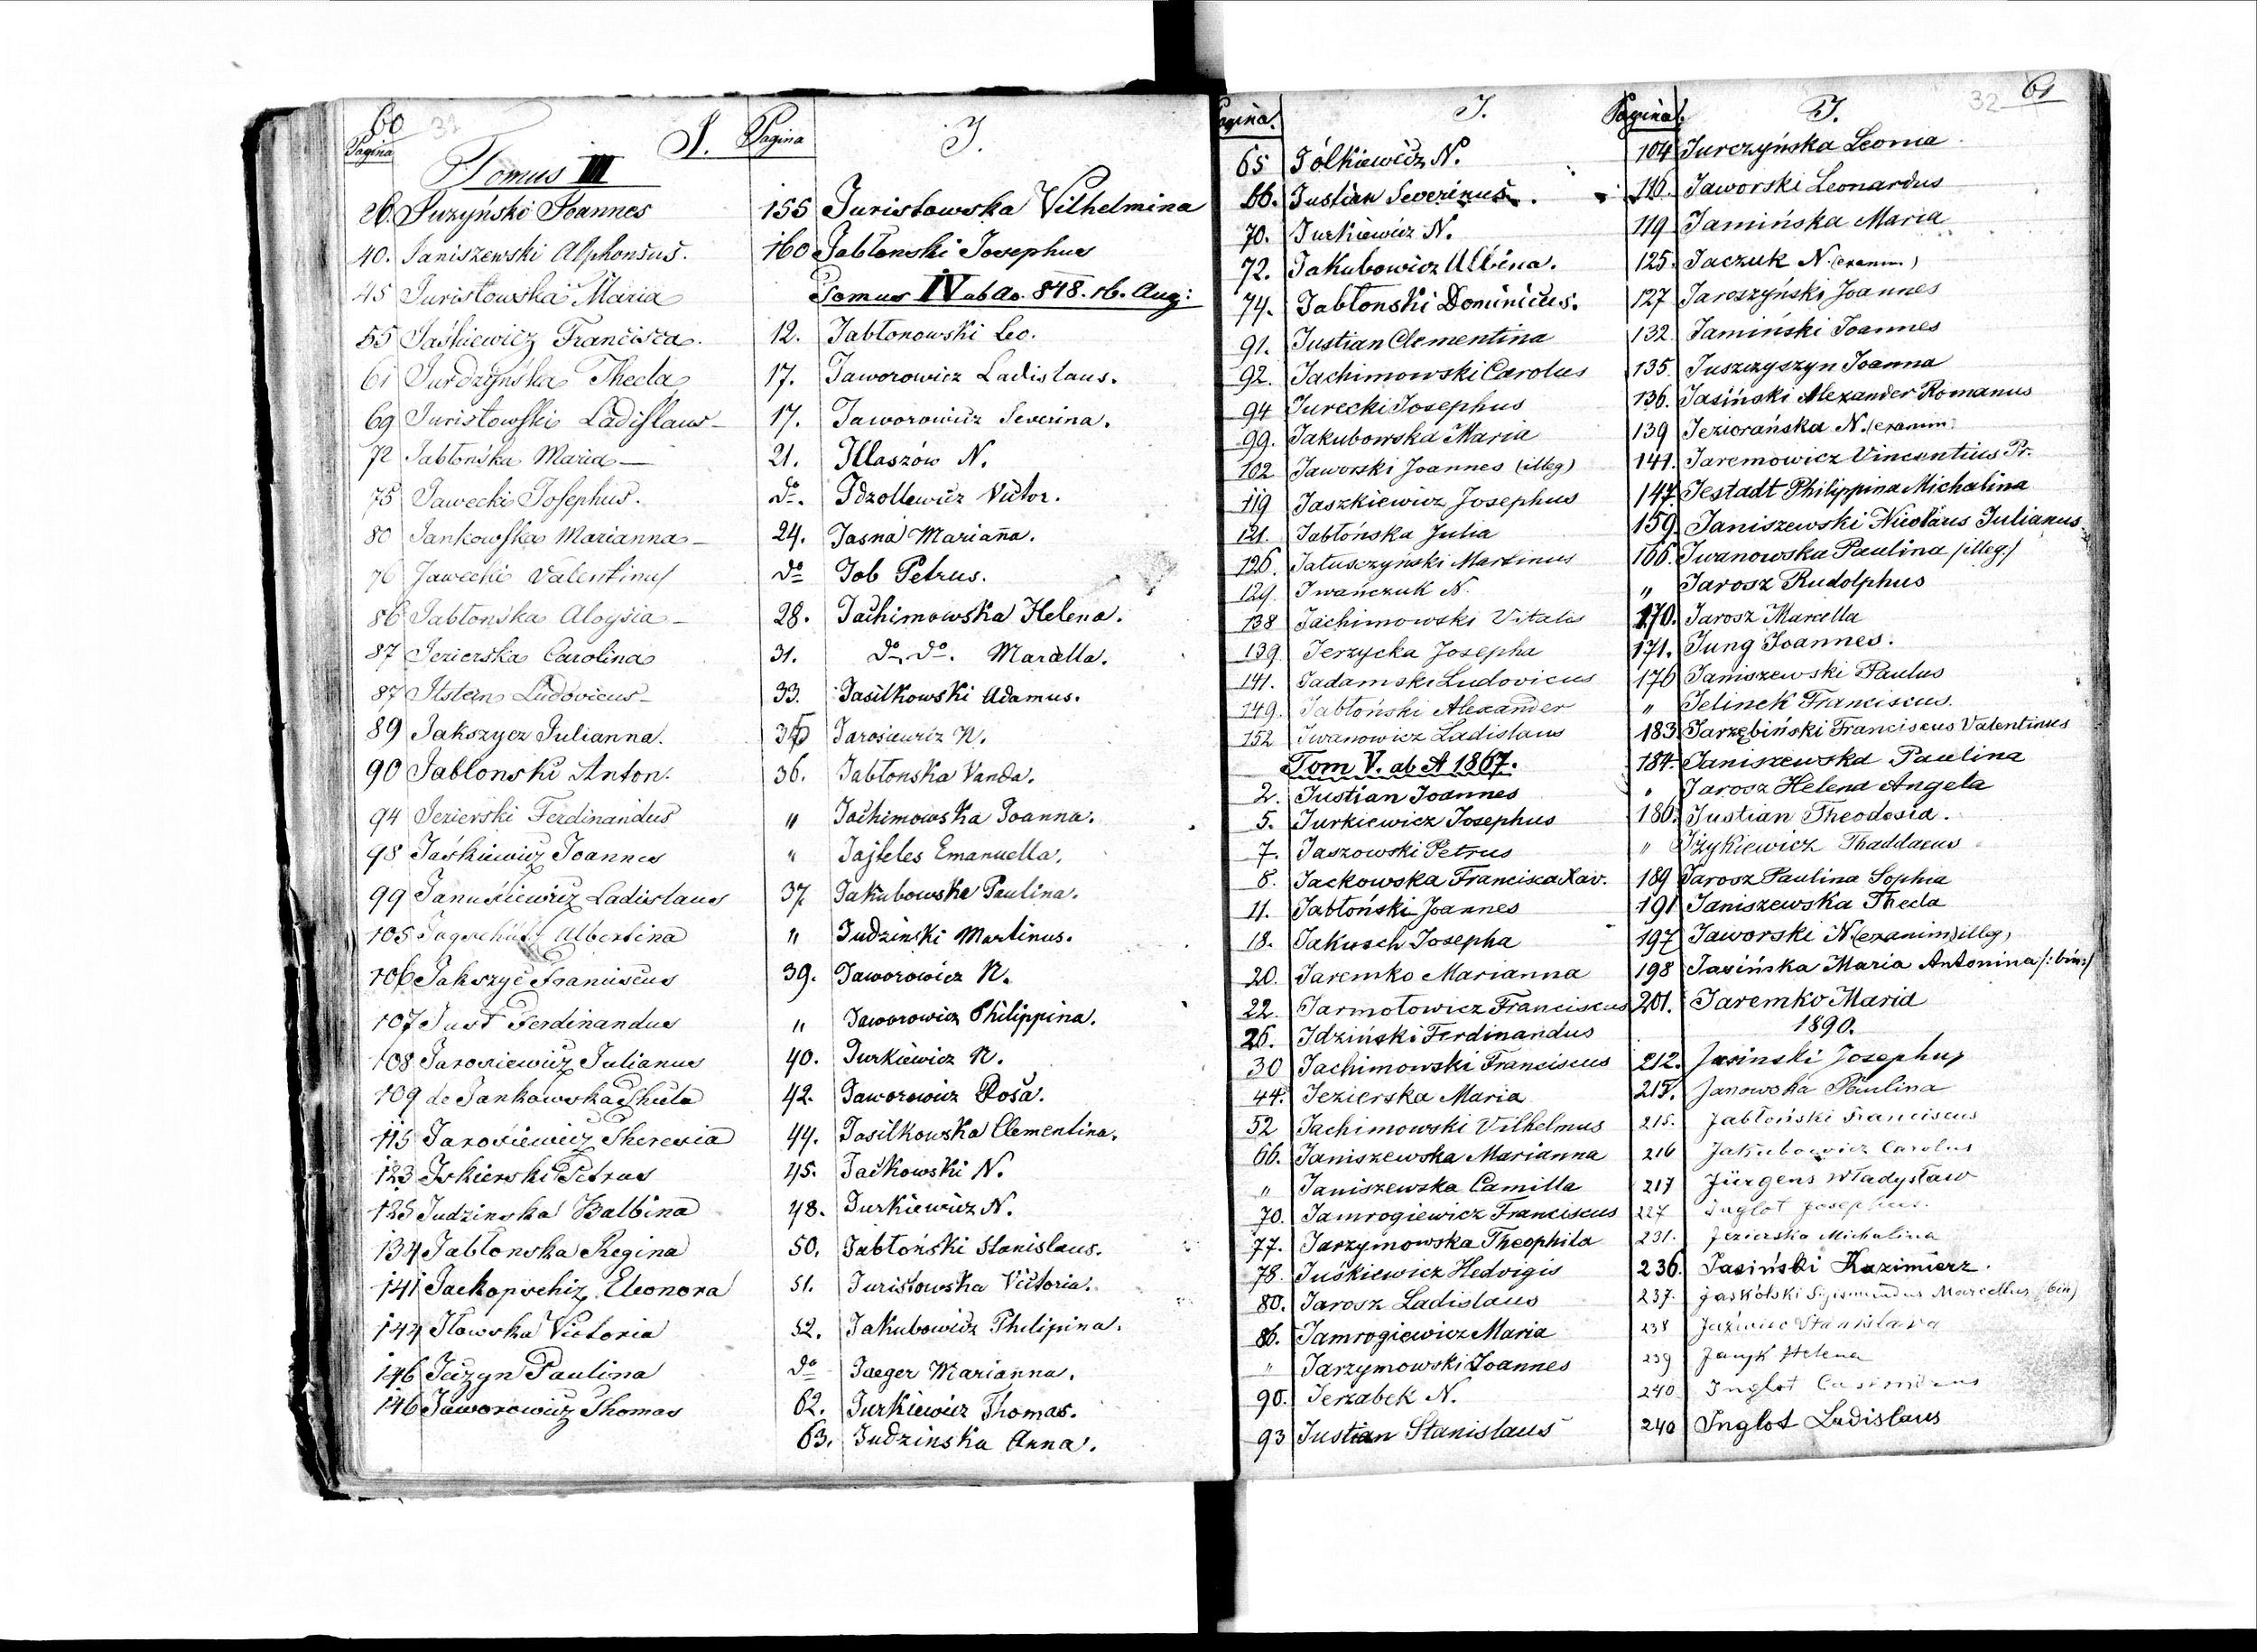 60 32
Pagina
I.
Tomus III
26. Juzyński Joannes
40. Janiszewski Alphonsus.
45 Juristowska Maria
55 Jaśkiewicz Francisca.
61 Jurdzyńska Thecla
69 Juristowski Ladislaus
72 Jabłońska Maria
75 Jawecki Josephus.
80 Jankowska Marianna
76 Jawecki Valentinus
86 Jabłońska Aloysia
87 Jezierska Carolina
87 Itstein Ludovicus
89 Jakszycz Julianna.
90 Jablonski Anton.
94 Jezierski Ferdinandus
98 Jaśkiewicz Joannes
99 Janusiewicz Ladislaus
105 Albertina
106 Jakszyc Franciscus
107 Just Ferdinandus
108 Jarosiewicz Julianus
109 de Jankowska Thecla
115 Jarosiewicz Theresia
123 Iskierski Petrus
125 Judzinska Balbina
134 Jabłonska Regina
141 Eleonora
144 Iłowska Victoria
146 Paulina
146 Jaworowicz Thomas
Pagina
I.
155 Juristowska Vilhelmina
160 Jabłonski Josephus
Tomus IV ab Ao. 848. 16. Aug:
12. Jabłonowski Leo.
17. Jaworowicz Ladislaus.
17. Jaworowicz Severina.
21. Illaszów N.
do. Victor.
24. Jasna Marianna.
do Job Petrus.
28. Jachimowska Helena.
31. do do. Marcella.
33. Jasilkowski Adamus.
35 Jarosiewicz N.
36. Jabłonska Vanda.
" Jachimowska Joanna.
" Jajteles Emanuella.
37. Jakubowska Paulina.
" Judzinski Martinus.
39. Jaworowicz N.
" Jaworowicz Philippina.
40. Jurkiewicz N.
42. Jaworowicz Rosa.
44. Jasilkowska Clementina.
45. Jackowski N.
48. Jurkiewicz N.
50. Jabłoński Stanislaus.
51. Juristowska Victoria.
52. Jakubowicz Philipina.
do Jaeger Marianna.
62. Jurkiewicz Thomas.
63. Judzinska Anna.
Pagina.
I.
65 Jółkiewicz N.
66. Justian Severinus.
70. Jurkiewicz N.
72. Jakubowicz Albina.
74. Jabłonski Dominicus.
91. Justian Clementina
92. Jachimowski Carolus
94 Jurecki Josephus
99. Jakubowska Maria
102 Jaworski Joannes (illeg)
119 Jaszkiewicz Josephus
121. Jabłońska Julia
126. Jatusczyński Martinus
129. Iwańczuk N.
138 Jachimowski Vitalis
139 Jerzycka Josepha
141. Jadamski Ludovicus
149. Jabłoński Alexander
152 Iwanowicz Ladislaus
Tom V. ab A 1867.
2. Justian Joannes
5. Jurkiewicz Josephus
7. Jaszowski Petrus
8. Jackowska Francisca Xav.
11. Jabłoński Joannes
18. Jakusch Josepha
20. Jaremko Marianna
22. Jarmołowicz Franciscus
26. Idziński Ferdinandus
30 Jachimowski Franciscus
44. Jezierska Maria
52 Jachimowski Vilhelmus
66. Janiszewska Marianna
" Janiszewska Camilla
70. Jamrogiewicz Franciscus
77. Jarzymowska Theophila
78. Juśkiewicz Hedvigis
80. Jarosz Ladislaus
86. Jamrogiewicz Maria
" Jarzymowski Joannes
90. Jerzabek N.
93 Justian Stanislaus
Pagina.
I.
32 61
104 Jurczyńska Leonia
116. Jaworski Leonardus
119 Jamińska Maria
125. Jaczuk N. (exanim)
127 Jaroszyński Joannes
132. Jamiński Joannes
135. Juszczyszyn Joanna
136. Jasiński Alexander Romanus
139 Jeziorańska N. (exanim)
141. Jaremowicz Vincentius Pr.
147. Jestadt Philippina Michalina
159. Janiszewski Nicolaus Julianus
166. Iwanowska Paulina (illeg)
" Jarosz Rudolphus
170. Jarosz Marcella
171. Jung Joannes.
176 Janiszewski Paulus
" Jelinek Franciscus.
183 Jarzębiński Franciscus Valentinus
184. Janiszewska Paulina
" Jarosz Helena Angela
186. Justian Theodosia.
" Iżykiewicz Thaddaeus
189 Jarosz Paulina Sophia
191 Janiszewska Thecla
197 Jaworski N. (exanim) illeg)
198 Jasińska Maria Antonina /:bin:/
201. Jaremko Maria
1890.
212. Jasinski Josephus
215. Janowska Paulina
215. Jabłoński Franciscus
216 Jakubowicz Carolus
217 Jürgens Władysław
227 Inglot Josephus.
231. Jezierska Michalina
236. Jasiński Kazimierz.
237. Jaskólski Sigismundus Marcellus (bin)
238 Stanislava
239 Janyk Helena
240. Inglot Casimirus
240 Inglot Ladislaus